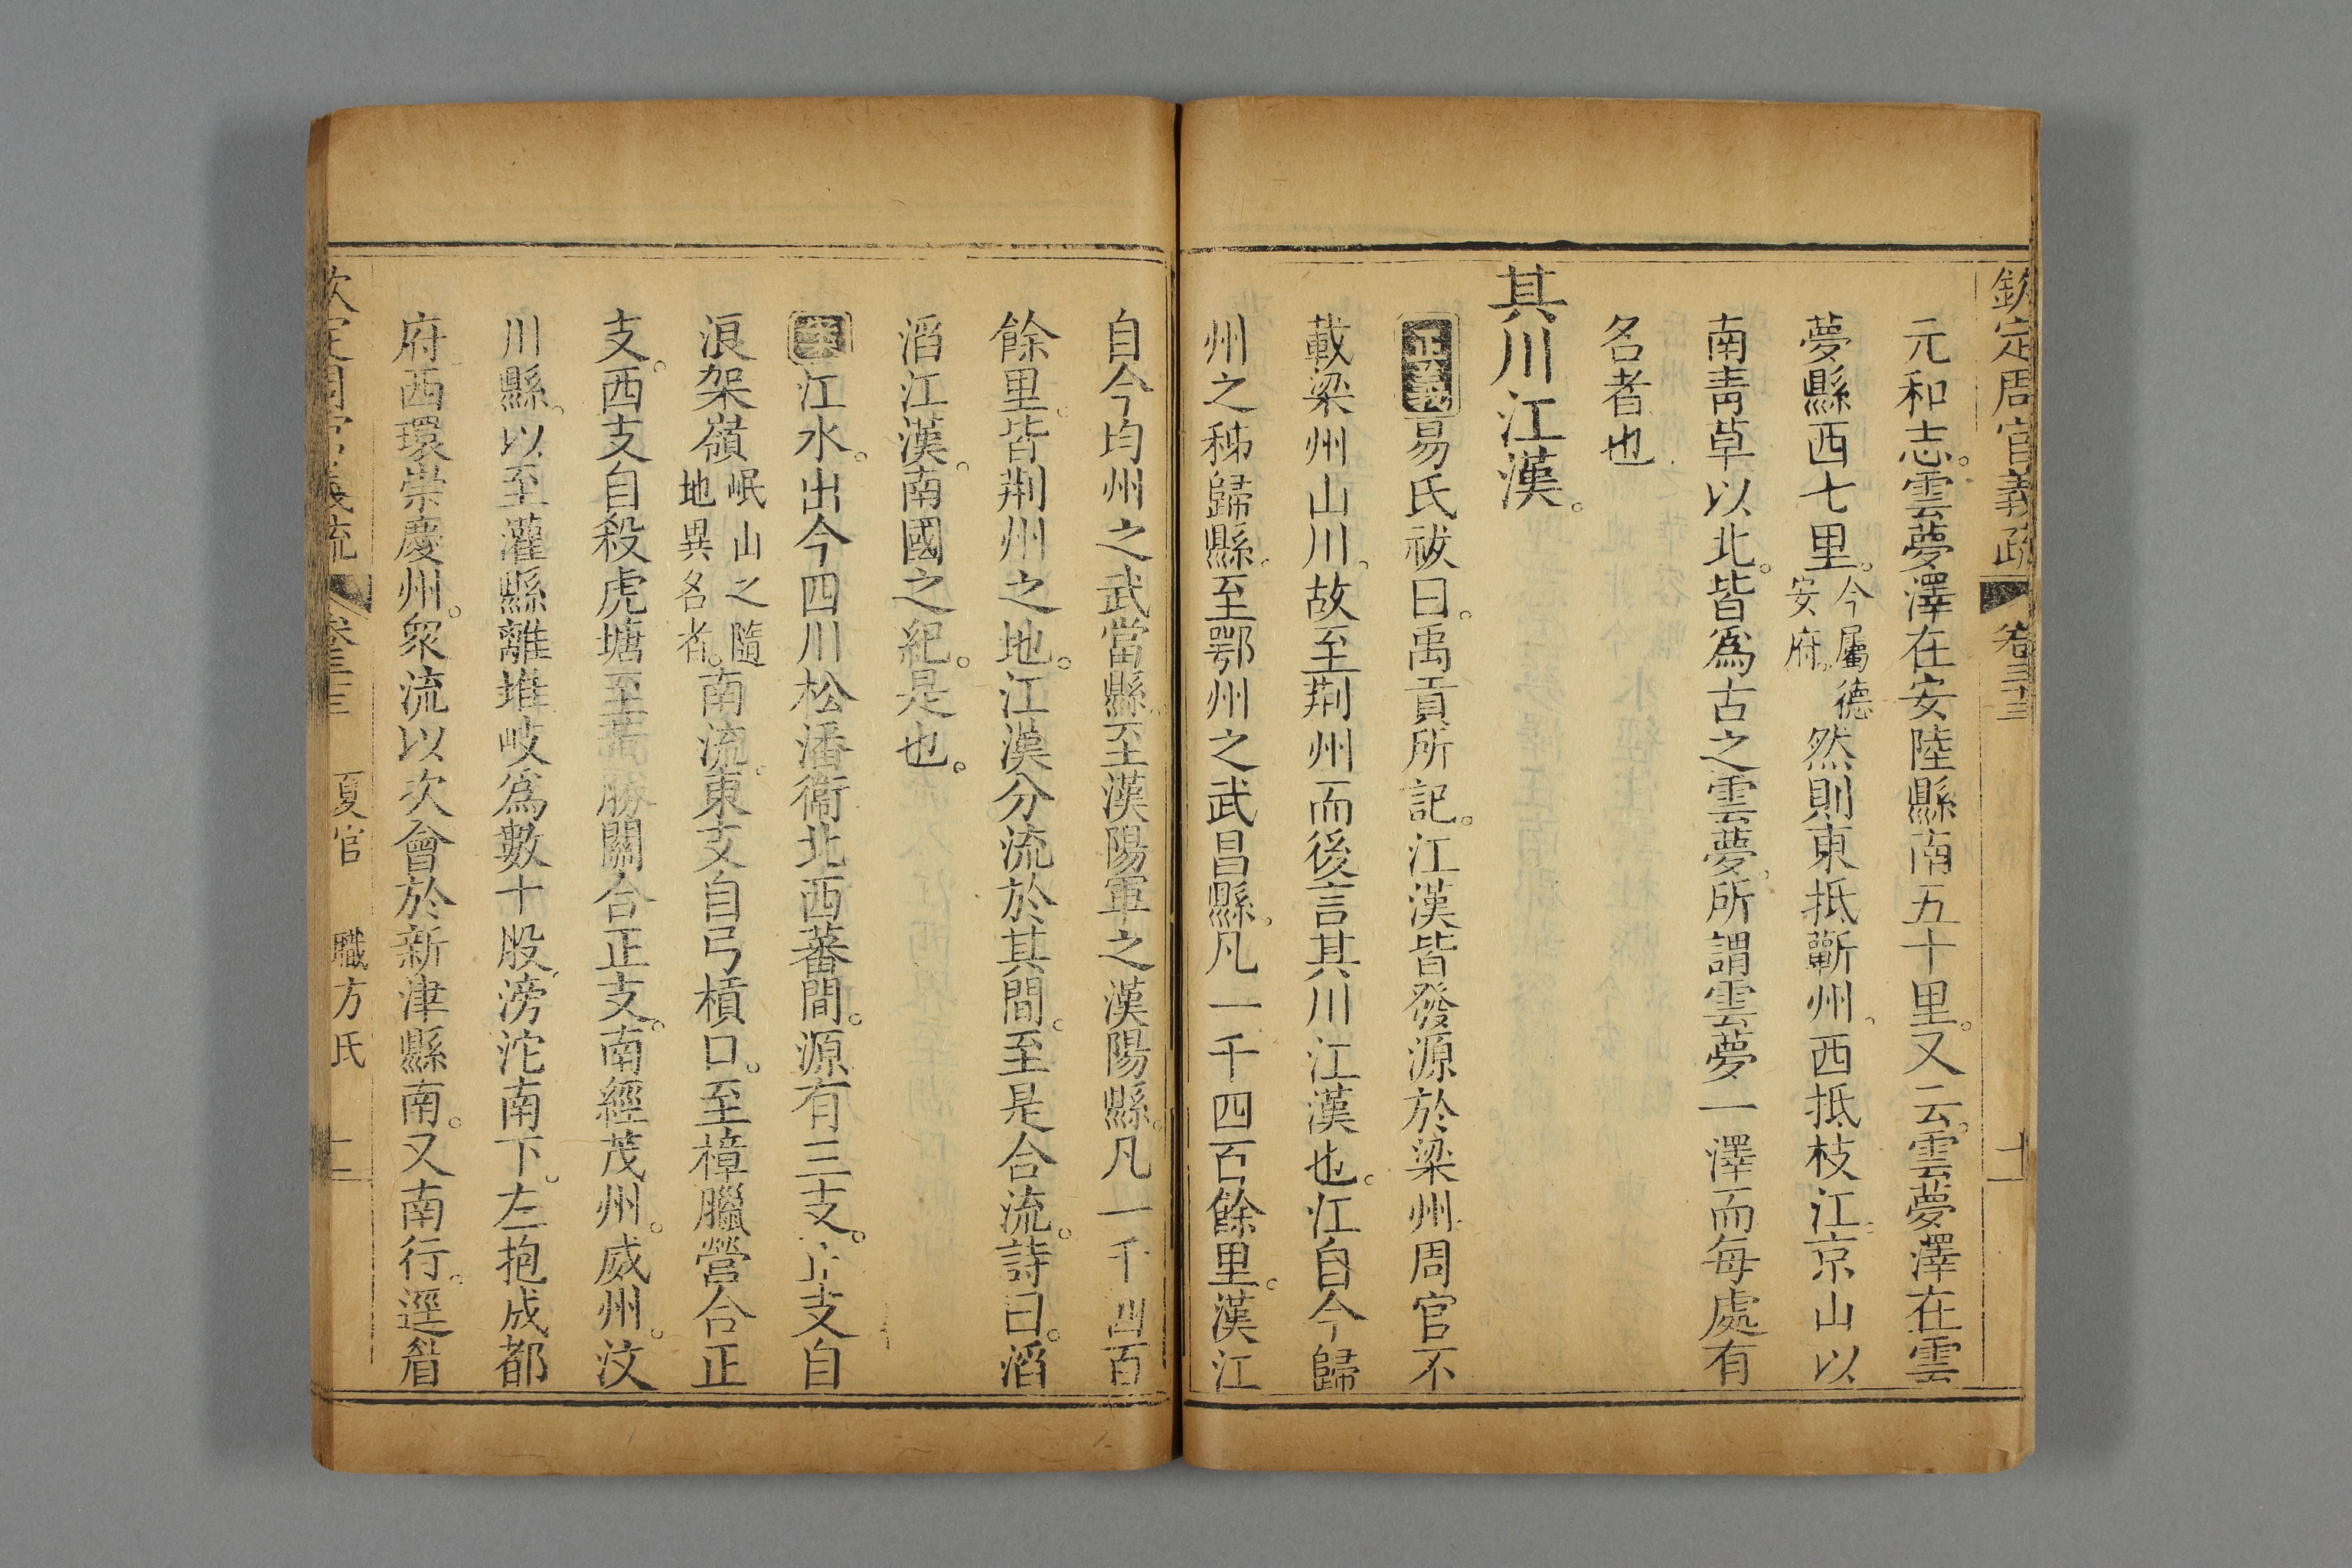 欽定周官義疏 卷三十三 十一
元和志。雲夢澤在安陸縣南五十里。又云。雲夢澤在雲
夢縣西七里。今屬德安府。然則東抵蘄州、西抵枝江、京山以
南靑草以北。皆爲古之雲夢。所謂雲夢一澤而每處有
名者也
其川江漢。
正義易氏祓曰。禹貢所記。江漢皆發源於梁州、周官不
載梁州山川、故至荆州而後言其川江漢也。江自今歸
州之秭歸縣。至鄂州之武昌縣。凡一千四百餘里。漢江
自今均州之武當縣、至漢陽軍之漢陽縣。凡一千四百
餘里。皆荆州之地。江漢分流於其間。至是合流。詩曰。滔
滔江漢。南國之紀。是也。
案江水。出今四川松潘衞北西蕃間。源有三支。正支自
浪架嶺岷山之隨地異名者。南流。東支自弓槓口。至樟臘營合正
支。西支自殺虎塘至黃勝關合正支。南經茂州。威州。汶
川縣。以至灌縣離堆岐爲數十股、滂沱南下。左抱成都
府。西環崇慶州。衆流以次會於新津縣南。又南行。逕眉
欽定周官義疏 卷三十三 夏官 職方氏 十二